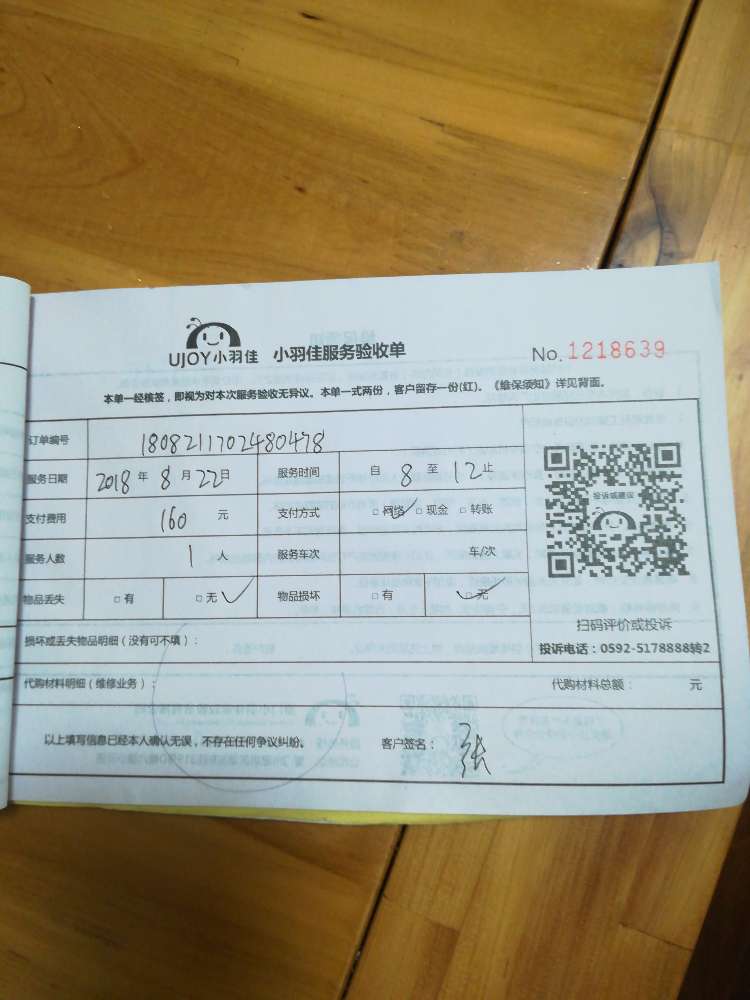 UJOY小羽佳 小羽佳服务验收单 No. 1218639
本单一经核签，即视为对本次服务验收无异议。本单一式两份，客户留存一份(红)。《维保须知》详见背面。
订单编号 1808211702480478
服务日期 2018 年 8 月 22 日 服务时间 自 8 至 12 止
支付费用 160 元 支付方式 □ 网络 ✓ □ 现金 □ 转账
服务人数 1 人 服务车次 车/次
物品丢失 □ 有 □ 无 ✓ 物品损坏 □ 有 □ 无 ✓
投诉或建议
扫码评价或投诉
投诉电话：0592-5178888转2
损坏或丢失物品明细（没有可不填）：
代购材料明细（维修业务）： 代购材料总额： 元
以上填写信息已经本人确认无误，不存在任何争议纠纷。 客户签名： 张